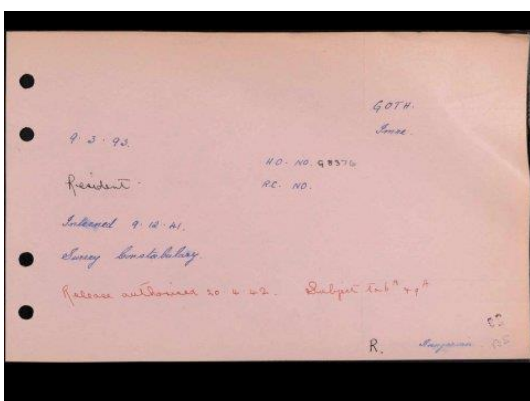 GOTH.
Imre
9. 3. 93.
H.O. NO. G8376
Resident.
R.C. NO.
Interned 9. 12. 41.
Surrey Constabulary
Release authorised 20. 4. 42. Subject to 6A + 9A
R.